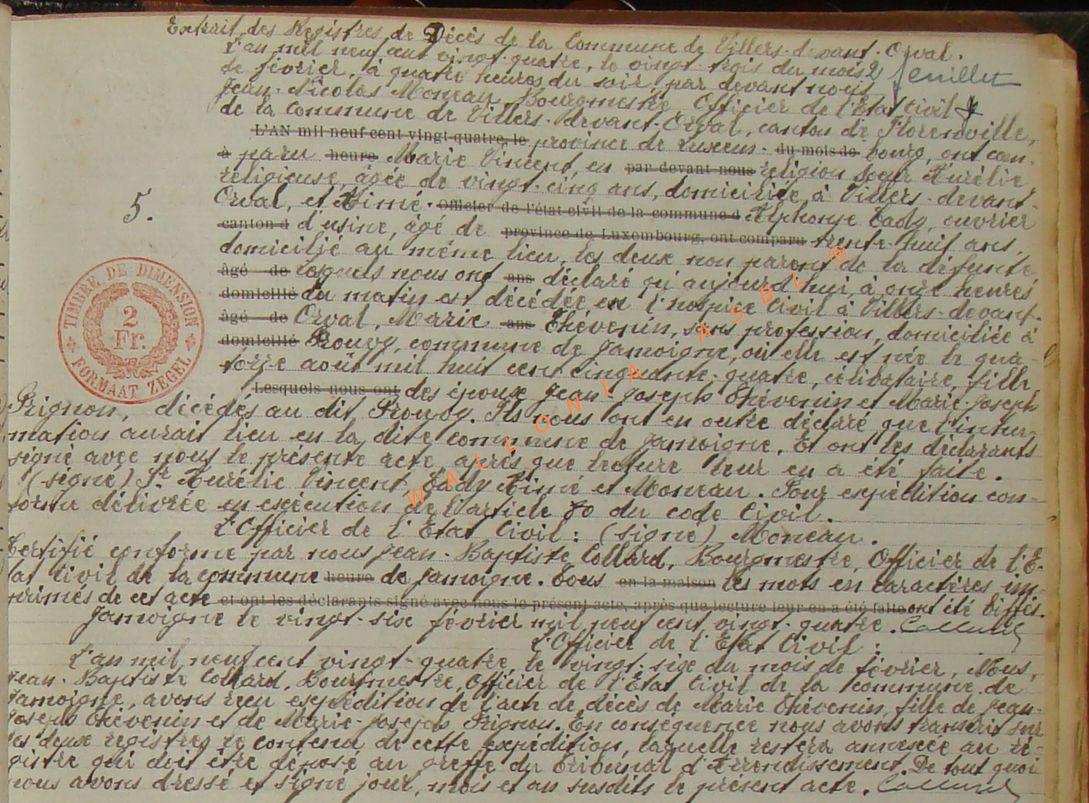 Extrait des Registres de Décès de la Commune de Villers-devant-Orval.
L'an mil neuf cent vingt-quatre, le vingt-trois du mois
de février, à quatre heures du soir, par devant nous feuillet
Jean-Nicolas Moneau, Bourgmestre, Officier de l'Etat Civil
de la Commune de Villers-devant-Orval, canton de Florenville,
L'AN mil neuf cent vingt-quatre, le province de Luxem- du mois de bourg, ont com-
à paru heure Marie Vincent, en par devant nous religion Sœur Aurélie
religieuse, âgée de vingt-cinq ans, domiciliée à Villers-devant-
5.
Orval, et Aimé- officier de l'état civil de la commune d Alphonse Eady, ouvrier
canton d d'usine, âgé de province de Luxembourg, ont comparu trente-huit ans,
domicilié au même lieu, les deux non parent de la défunte
âgé de lesquels nous ont ans déclaré qu'aujourd'hui à onze heures
domicilié du matin est décédée en l'hospice Civil à Villers-devant-
âgé de Orval, Marie ans Thévenin, sans profession, domiciliée à
domicilié Prouvy, commune de Jamoigne, où elle est née le qua-
torze août mil huit cent cinquante-quatre, célibataire, fille
Lesquels nous ont des époux Jean-Joseph Thévenin et Marie-Joseph
Prignon, décédés au dit Prouvy. Ils nous ont en outre déclaré que l'inhu-
mation aurait lieu en la dite commune de Jamoigne. Et ont les déclarants
signé avec nous le présente acte, après que lecture leur en a été faite.
(signé) Sr Aurélie Vincent, Eady Aimé et Moneau. Pour expédition con-
forme délivrée en exécution de l'article 80 du code Civil.
L'Officier de l'Etat Civil: (signé) Moneau.
Certifié conforme par nous Jean-Baptiste Collard, Bourgmestre, Officier de l'E-
tat Civil de la Commune heure de Jamoigne. Tous en la maison les mots en caractères im-
primés de cet acte et ont les déclarants signé avec nous le présent acte, après que lecture leur en a été faite ont été biffés.
Jamoigne le vingt-six février mil neuf cent vingt-quatre. Collard
L'Officier de l'Etat Civil:
L'an mil neuf cent vingt-quatre, le vingt-six du mois de février, Nous,
Jean-Baptiste Collard, Bourgmestre, Officier de l'Etat Civil de la commune de
Jamoigne, avons reçu expédition de l'acte de décès de Marie Thévenin, fille de Jean-
Joseph Thévenin et de Marie-Joseph Prignon. En conséquence nous avons transcrit sur
les deux registres le contenu de cette expédition, laquelle restera annexée au re-
gistre qui doit être déposé au greffe du Tribunal d'Arrondissement. De tout quoi
nous avons dressé et signé jour, mois et an susdits le présent acte. Collard
TIMBRE DE DIMENSION
2
Fr.
FORMAAT ZEGEL